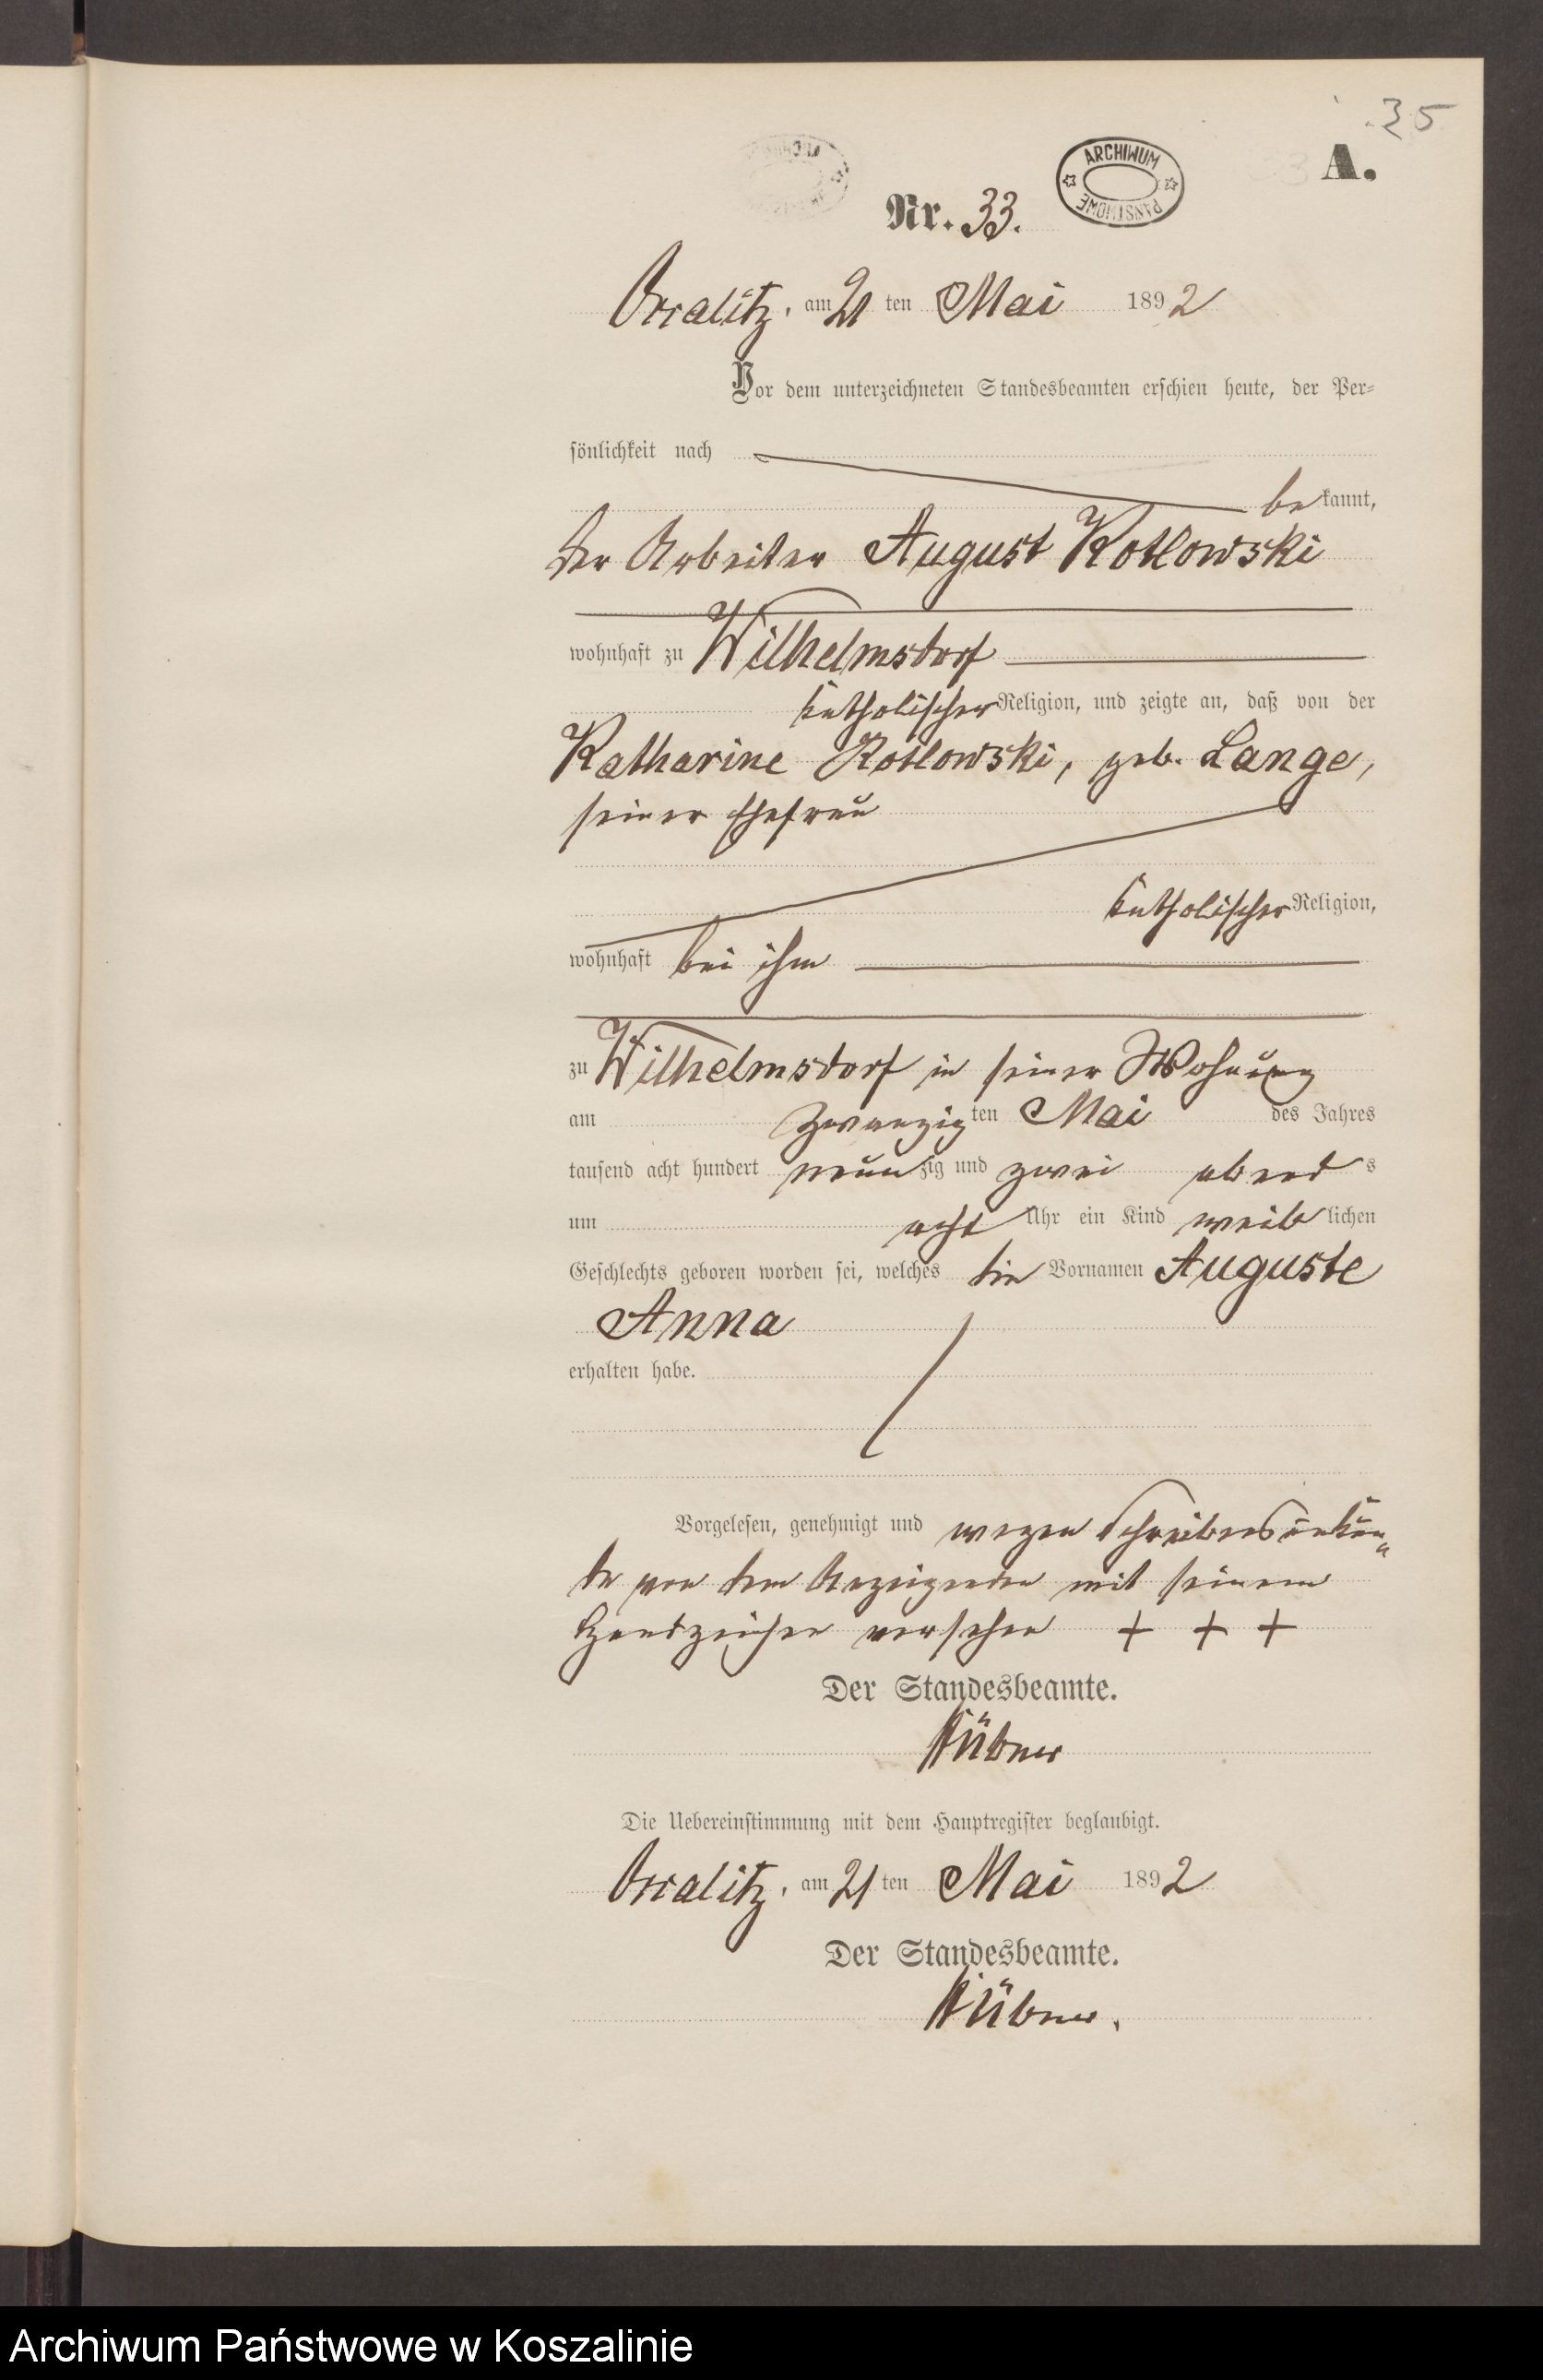 35
ARCHIWUM PAŃSTWOWE
A.
Nr. 33.
am 21 ten Mai 1892
Vor dem unterzeichneten Standesbeamten erschien heute, der Per-
sönlichkeit nach
bekannt,
der Arbeiter August Kotlowski
wohnhaft zu Wilhelmsdorf
katholischer Religion, und zeigte an, daß von der
Katharine Kotlowski, geb. Lange,
seiner Ehefrau
katholischer Religion,
wohnhaft bei ihm
zu Wilhelmsdorf in seiner Wohnung
am zwanzigten Mai des Jahres
tausend acht hundert neunzig und zwei abends
um acht Uhr ein Kind weiblichen
Geschlechts geboren worden sei, welches die Vornamen Auguste
Anna
erhalten habe.
Vorgelesen, genehmigt und wegen Schreibensunkun-
de von dem Anzeigenden mit seinem
Handzeichen versehen + + +
Der Standesbeamte.
Hübner
Die Uebereinstimmung mit dem Hauptregister beglaubigt.
am 21 ten Mai 1892
Der Standesbeamte.
Hübner.
Archiwum Państwowe w Koszalinie